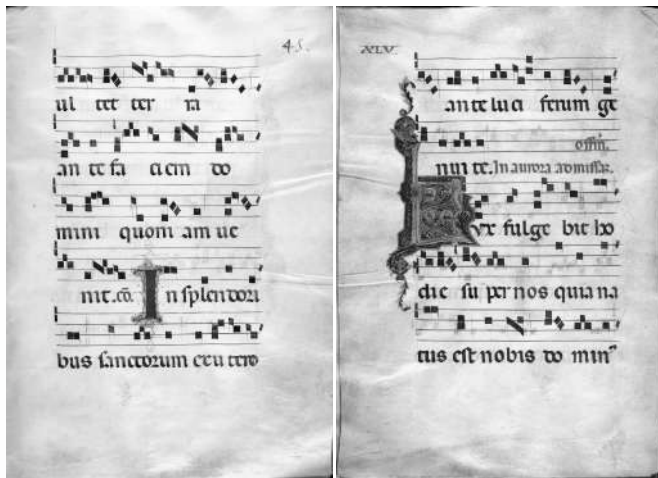 45.
ul tet ter ra
an te fa ci em do
mini quoni am ve
nit. co. In splendori
bus sanctorum ex utero
XLV.
ante luci ferum ge
nui te. In aurora ad missam.
Lux fulge bit ho
die su per nos quia na
tus est nobis do min